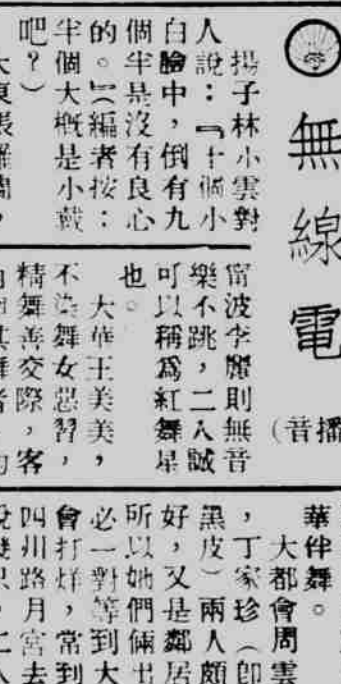 無線電
(播音
揚子林小雲對
人說：『十個小
白臉中，倒有九
個半是沒有良心
的。』(編者按：
半個大概是小戴
吧？)
甯波李麗則無音
樂不跳，二人誠
可以稱爲紅舞星
也。
大華王美美，
不染舞女惡習，
精舞善交際，客
華伴舞。
大都會周雲
，丁家珍（卽
黑皮）兩人頗
好，又是鄰居
所以她們倆出
必一對等到大
會打烊，常到
四川路月宮去